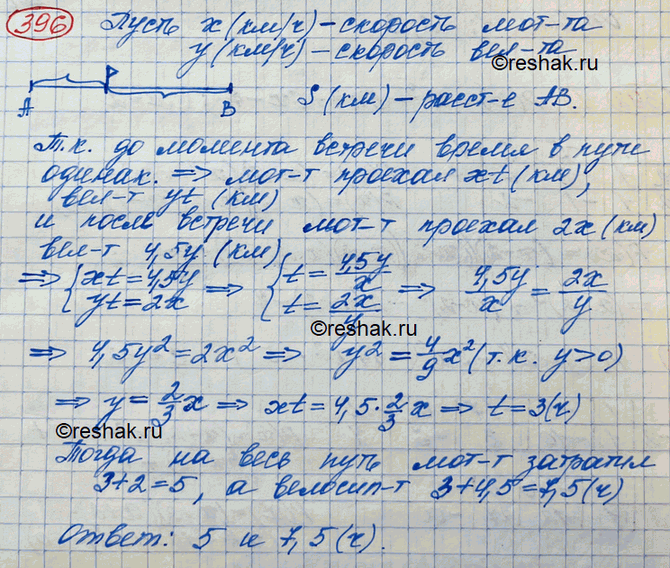 396 Пусть x (км/ч) – скорость мот-та
y (км/ч) – скорость вел-та
©reshak.ru
A P B S (км) – расст-е AB.
Т.к. до момента встречи время в пути
одинак. ⇒ мот-т проехал xt (км),
вел-т yt (км)
и после встречи мот-т проехал 2x (км)
вел-т 4,5y (км)
⇒ { xt = 4,5y yt = 2x ⇒ { t = 4,5y/x t = 2x/y ⇒ 4,5y/x = 2x/y
©reshak.ru
⇒ 4,5y² = 2x² ⇒ y² = 4/9 x² (т.к. y>0)
⇒ y = 2/3 x ⇒ xt = 4,5 · 2/3 x ⇒ t = 3 (ч)
©reshak.ru
Тогда на весь путь мот-т затратил
3+2=5, а велосип-т 3+4,5=7,5 (ч)
©reshak.ru
Ответ: 5 и 7,5 (ч).